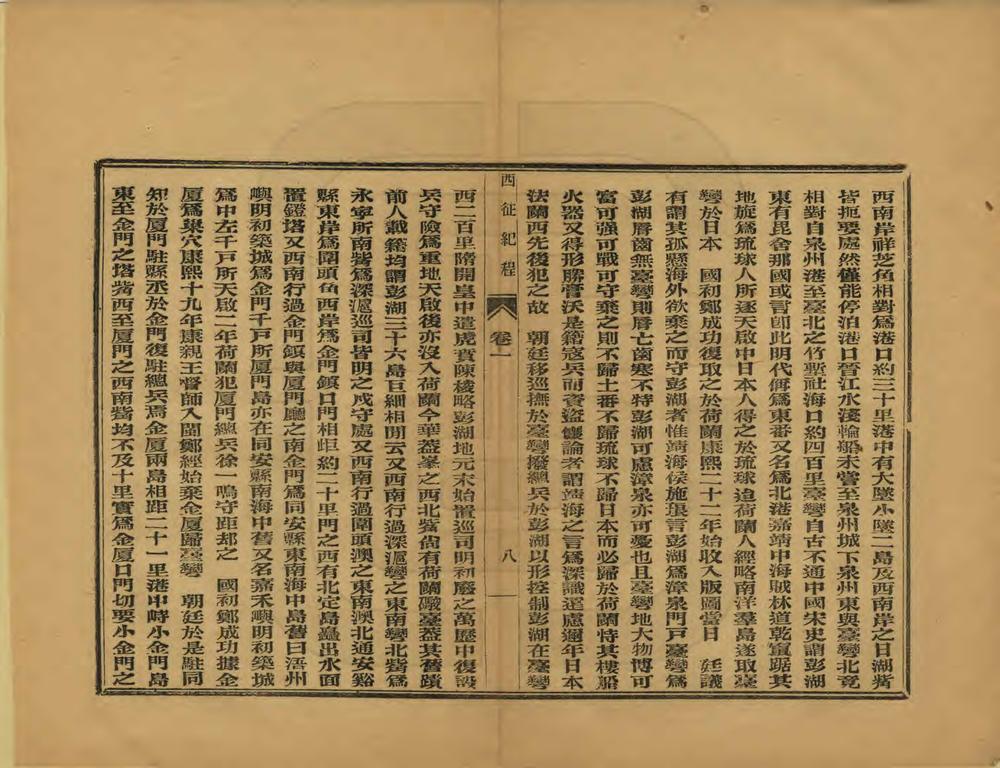 西南岸祥芝角相對爲港口約三十里港中有大墜小墜二島及西南岸之日湖觜
皆扼要處然僅能停泊港口晉江水淺輪船未嘗至泉州城下泉州東與臺灣北竟
相對自泉州港至臺北之竹塹社海口約四百里臺灣自古不通中國宋史謂彭湖
東有毘舍那國或言卽此明代俹爲東番又名爲北港嘉靖中海賊林道乾竄踞其
地旋爲琉球人所逐天啟中日本人得之於琉球迨荷蘭人經略南洋羣島遂取臺
灣於日本 國初鄭成功復取之於荷蘭康熙二十二年始收入版圖當日 廷議
有謂其孤懸海外欲棄之而守彭湖者惟靖海侯施琅言彭湖爲漳泉門戸臺灣爲
彭湖脣齒無臺灣則脣亡齒寒不特彭湖可慮漳泉亦可憂也且臺灣地大物博可
富可强可戰可守棄之則不歸土番不歸琉球不歸日本而必歸於荷蘭恃其樓船
火器又得形勝膏沃是藉寇兵而資盜糧論者謂靖海之言爲深識遠慮邇年日本
法蘭西先後犯之故 朝廷移巡撫於臺灣撥總兵於彭湖以形控制彭湖在臺灣
西征紀程 卷一 八
西二百里隋開皇中遣虎賁陳稜略彭湖地元末始置巡司明初廢之萬歷中復設
兵守險爲重地天啟後亦沒入荷蘭今華蓋峯之西北觜尙有荷蘭礮臺蓋其舊蹟
前人載籍均謂彭湖三十六島巨細相間云又西南行過深滬灣之東南灣北觜爲
永寧所南觜爲深滬巡司皆明之戍守處又西南行過圍頭澳之東南澳北通安谿
縣東岸爲圍頭角西岸爲金門鎮口門相距約二十里門之西有北定島矗出水面
置鐙塔又西南行過金門鎮與厦門廳之南金門爲同安縣東南海中島舊曰浯州
嶼明初築城爲金門千戸所厦門島亦在同安縣南海中舊又名嘉禾嶼明初築城
爲中左千戸所天啟二年荷蘭犯厦門總兵徐一鳴守距却之 國初鄭成功據金
厦爲巢穴康熙十九年康親王督師入閩鄭經始棄金厦歸臺灣 朝廷於是駐同
知於厦門駐縣丞於金門復駐總兵焉金厦兩島相距二十一里港中時小金門島
東至金門之塔觜西至厦門之西南觜均不及十里實爲金厦口門切要小金門之